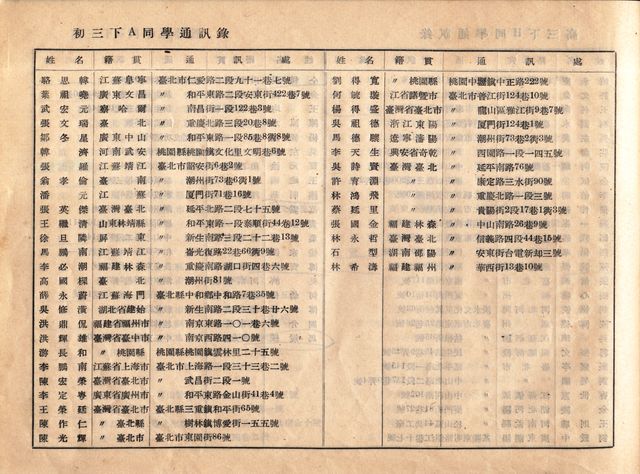 初三下A同學通訊錄
姓名 籍貫 通訊處
駱思韓 江蘇阜寧 臺北市仁愛路二段九十一巷七號
葉祖堯 廣東文昌 〃 和平東路二段安東街422巷7號
武宏元 察哈爾 〃 南昌街一段122巷3號
張文瑞 臺北 〃 重慶北路三段20巷8號
鄒冬星 廣東中山 〃 和平東路一段85巷8衖8號
韓濟 河南武安 桃園縣桃園鎮文化里文明巷6號
張羅 江蘇靖江 臺北市詔安街6巷2號
翁孝倫 〃 潮州街73巷6衖1號
潘元 江蘇 〃 廈門街71巷16號
張英傑 臺灣臺北 〃 延平北路二段七十五號
王繼清 山東林靖縣 〃 和平東路一段泰順街44巷12號
徐旦隣 屏東 〃 新生南路三段二十二巷13號
馬鵬南 江蘇靖江 〃 臺北復路22巷66衖9號
李必潮 福建林森 〃 重慶南路湖口街四巷六號
高國樑 臺北 〃 潮州街81號
薛永蔚 江蘇海門 臺北縣中和鄉中和路7巷35號
吳修潢 湖北省建始 〃 新生南路二段三十巷廿六號
洪鼎侃 福建省福州市 〃 南京東路一〇一巷六號
洪輝雄 臺灣省臺中市 〃 南京西路四一〇號
游長和 〃 桃園縣 桃園縣桃園鎮雲林里二十五號
李鵬南 江蘇省上海市 臺北市上海路一段三十三巷二號
陳宏榮 臺灣省臺北市 〃 武昌街二段一號
李定粵 廣東省廣州市 〃 和平東路金山街41巷4號
王榮廷 臺灣省臺北市 臺北縣三重鎮和平街65號
陳作仁 〃 臺北縣 〃 樹林鎮博愛街一五五號
陳光輝 〃 臺北市 臺北市東園街86號
姓名 籍貫 通訊處
劉得寬 〃 桃園縣 桃園縣中壢鎮中正路222號
何毓駿 江省諸暨市 臺北市晉江街124巷10號
楊得盛 臺灣省臺北市 〃 龍山區雅江街9巷7號
吳祖德 浙江東陽 〃 廈門街124巷1號
馬德驄 遼寧瀋陽 〃 潮州街73巷2衖3號
李天生 興安省奇乾 〃 西園路一段一四五號
吳詩寶 臺北 〃 延平南路76號
許青 〃 康定路三水街90號
林鴻飛 〃 重慶北路一段三號
蔡廷里 〃 貴陽街2段17巷1衖3號
張國金 福建林森 〃 中山南路26巷9號
林永哲 臺灣臺北 〃 信義路四段44巷15號
石型 湖南邵陽 〃 安東街台電新邨三號
林希濤 福建福州 〃 華西街13巷10號